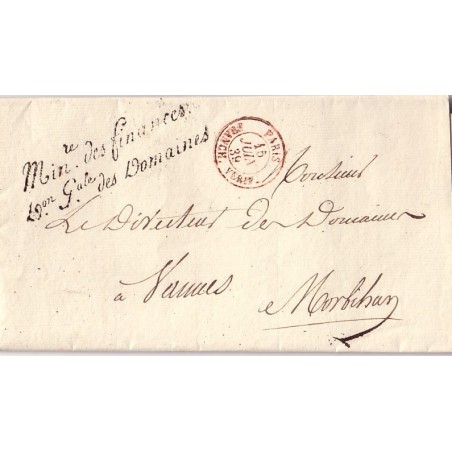 Min.re des finances
D.on G.ale des Domaines
PARIS
15
JUIN
39
Monsieur
Le Directeur des Domaines
à Vannes
Morbihan